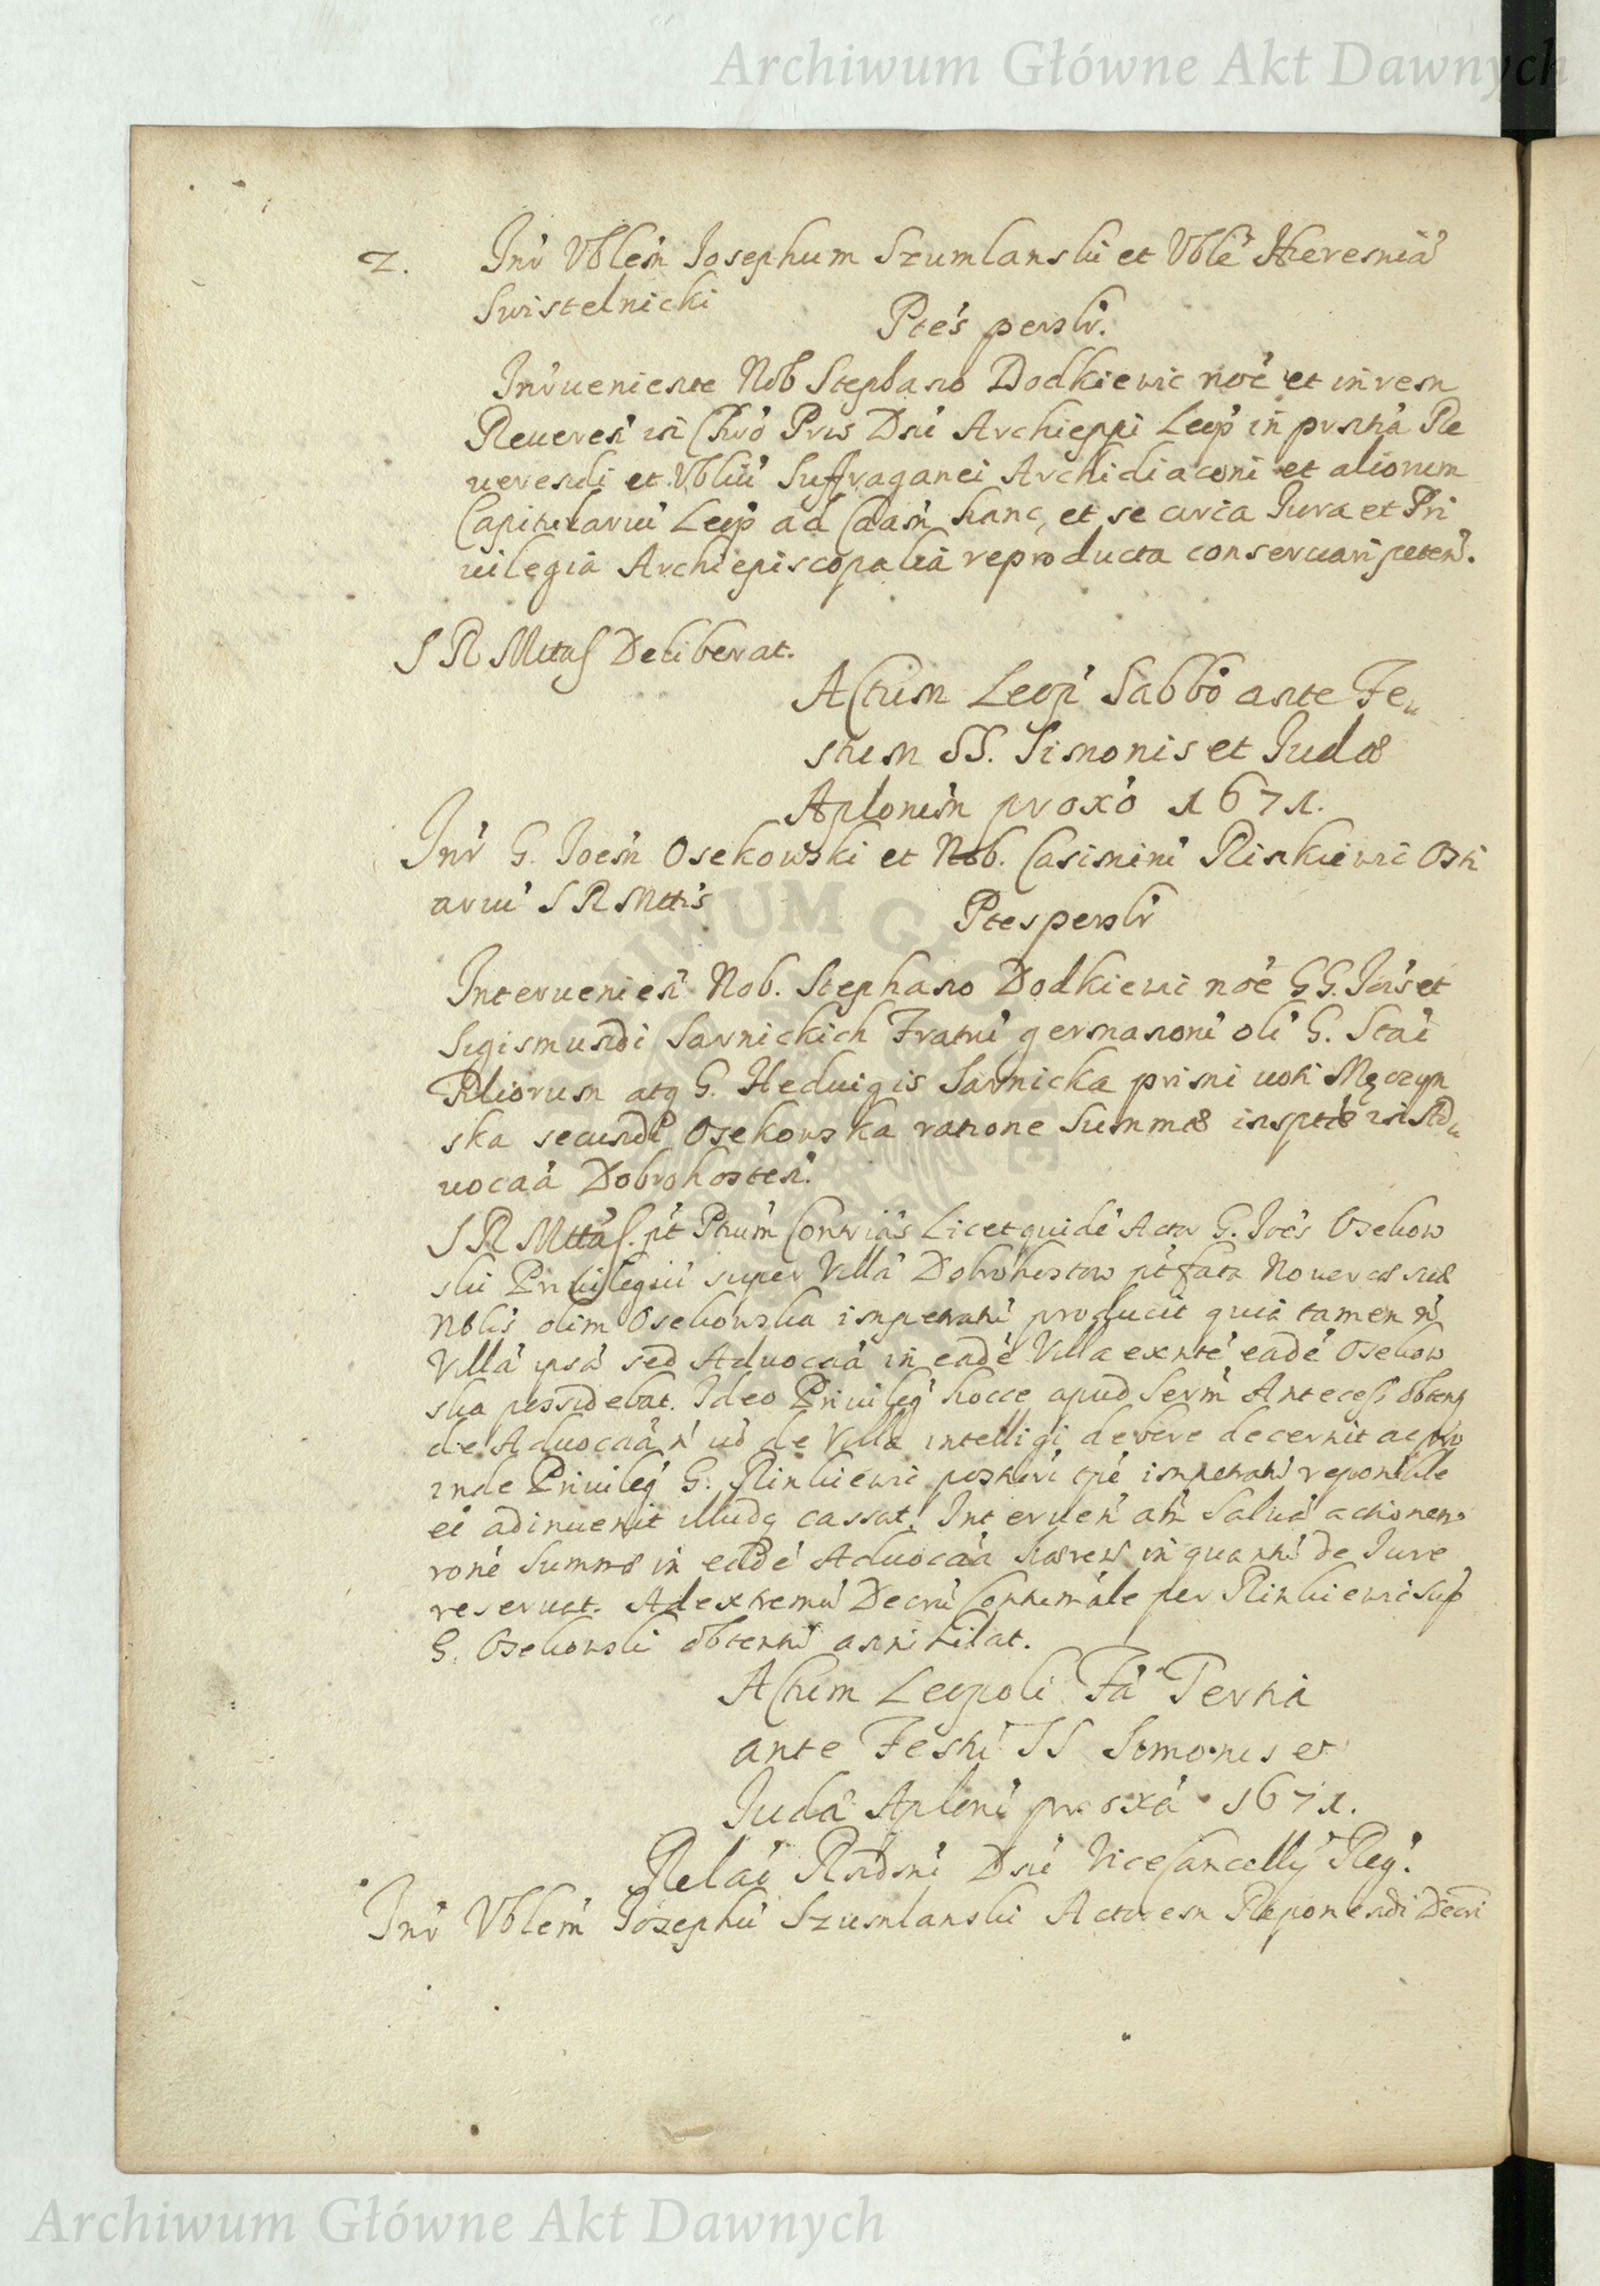 Archiwum Główne Akt Dawnych
2. Inr̃ Vblem̃ Josephum Szumlanski et Vblẽ Hieremiã
Swistelnicki
Ptẽs persl̃r.
Inr̃ueniente Nob Stephano Dodkiewic noẽ et in rem
Reueren̄ in Chrõ Pris Dni Archieppi Leop̃ in prntiã Re
uerendi et Vbliũ Suffraganei Archidiaconi et aliorum
Capitulariũ Leop̃ ad Caãm hanc, et se circa Iura et Pri
uilegia Archiepiscopalia reproducta conseruari peten̄.
S R Mttas Deliberat.
Actum Leop̃ Sabbõ ante Fe„
stum SS. Simonis et Judæ
Aplorũm proxõ 1671.
Inr̃ G. Joem̃ Osekowski et Nob. Casimirũ Rinkiewic Osti
ariũ S R Mttis
Ptes persl̃r
Interuenien̄ Nob. Stephano Dodkiewic noẽ GG. Jois et
Sigismundi Sarnickich Fratrũ germanorũ oli G. Stai
Filiorum atq G. Heduigis Sarnicka primi uoti Męczyn
ska secundi Osekowska ratione Summæ insptæ in Ad„
uocaã Dobrohosten̄.
S R Mttas. pt Ptium Contrias Licet quidẽ Actor G. Jois Osekow
ski Priuilegiũ super Villã Dobrohostow ptfatæ Nouercæ suæ
Nblis olim Osekowska impetratũ producit quia tamen ñ
Villã ipsã sed Aduocaã in eadẽ Villa extntẽ eadẽ Osekow
ska possidebat. Ideo Priuileg̃ hocce apud Serm̃ Antecess obtent
de Aduocaã ñ uõ de Villa intelligi debere decernit ac pro
inde Priuileg̃ G. Rinkiewic posteri tpẽ impetratũ reponibile
ei adinuenit illudq cassat. Interuen̄ atñ Saluã actionem
ronẽ Summæ in eadẽ Aduocaã hæren̄ in quantũ de Jure
reseruat. Ad extremũ Decrũ Contumãle per Rinkiewic sup
G. Osekowski obtentũ annihilat.
Actum Leopoli Fã Tertia
ante Festũ SS Simonis et
Judã Aplorũ proxã 1671.
Relaõ Rndmi Dni ViceCancellÿ Reg̃.
Inr̃ Vblem̃ Josephũ Szumlanski Actorem Reponendi Decri
Archiwum Główne Akt Dawnych